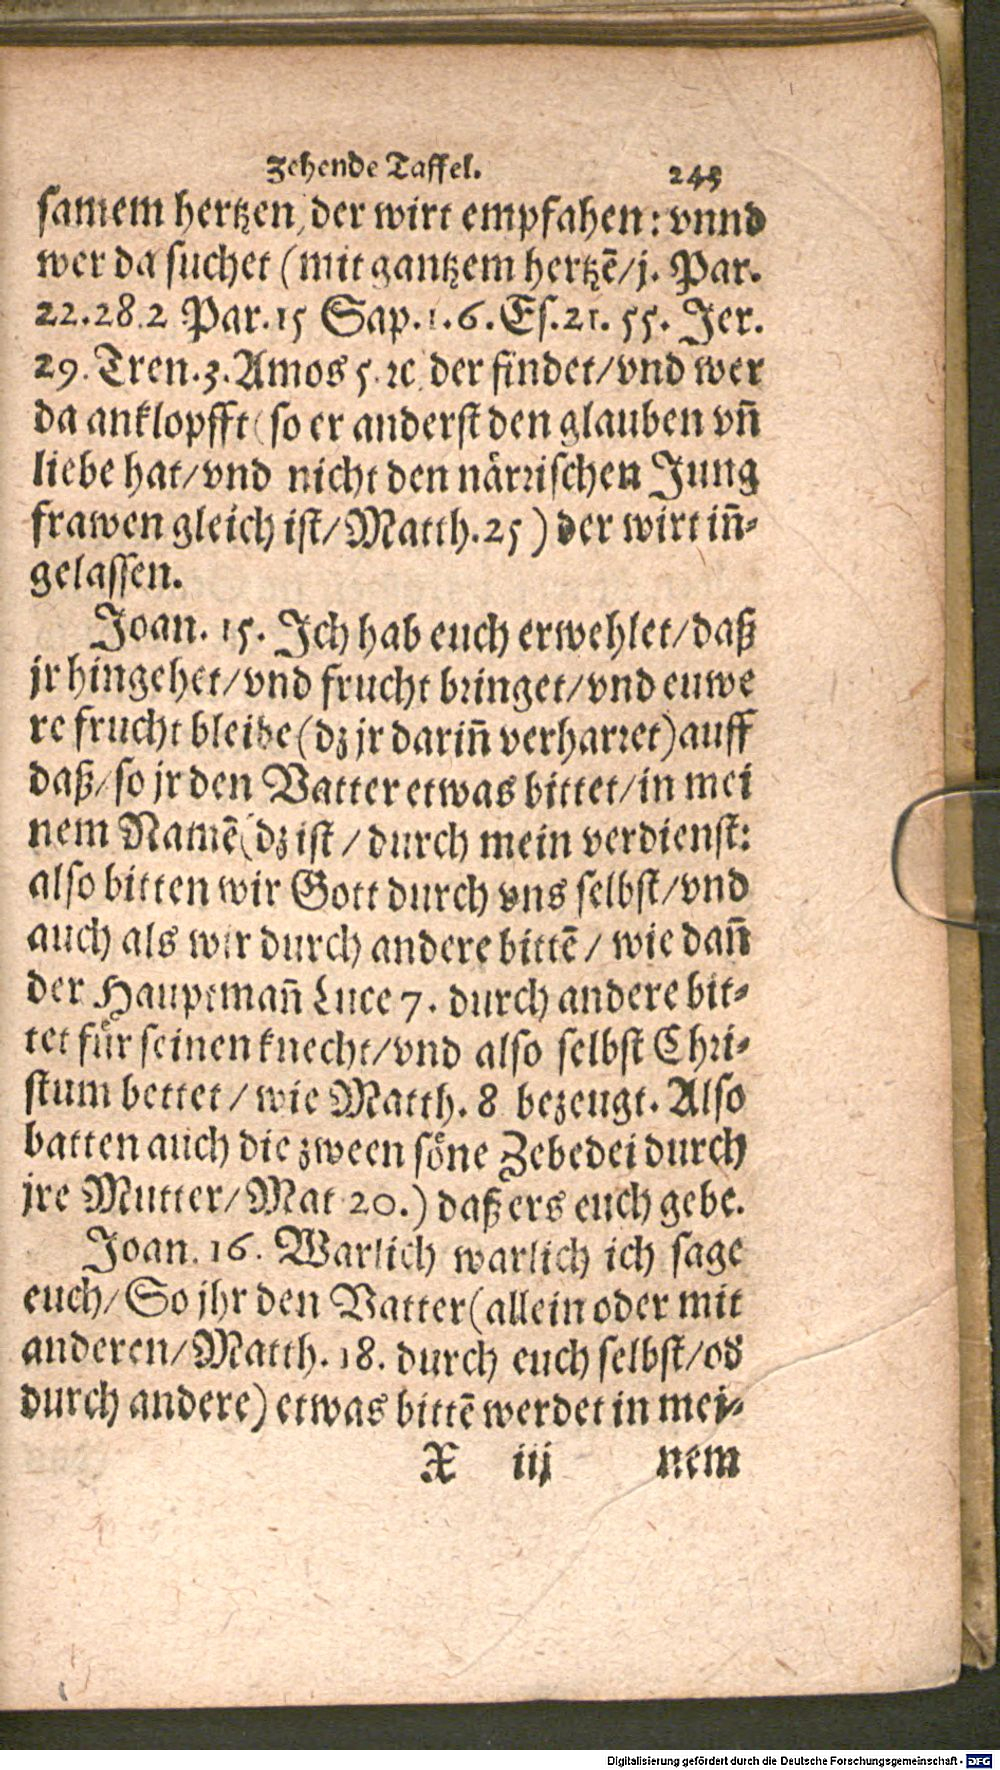 Zehende Taffel. 245
samem hertzen, der wirt empfahen: vnnd
wer da suchet (mit gantzem hertzē/ j. Par.
22.28.2 Par. 15 Sap. 1. 6. Es. 21. 55. Jer.
29. Tren. 3. Amos 5. ꝛc. der findet/ vnd wer
da anklopfft (so er anderst den glauben vñ
liebe hat/ vnd nicht den närrischen Jung
frawen gleich ist/ Matth. 25) der wirt iñ-
gelassen.
Joan. 15. Ich hab euch erwehlet/ daß
jr hingehet/ vnd frucht bringet/ vnd euwe
re frucht bleibe (dz jr dariñ verharret) auff
daß/ so jr den Vatter etwas bittet/ in mei
nem Namē (dz ist/ durch mein verdienst:
also bitten wir Gott durch vns selbst/ vnd
auch als wir durch andere bittē/ wie dañ
der Hauptmañ Luce 7. durch andere bit-
tet für seinen knecht/ vnd also selbst Chri-
stum bettet/ wie Matth. 8 bezeugt. Also
batten auch die zween söne Zebedei durch
jre Mutter/ Mat 20.) daß ers euch gebe.
Joan. 16. Warlich warlich ich sage
euch/ So jhr den Vatter (allein oder mit
anderen/ Matth. 18. durch euch selbst/ od̕
durch andere) etwas bittē werdet in mei-
X iij nem
Digitalisierung gefördert durch die Deutsche Forschungsgemeinschaft - DFG